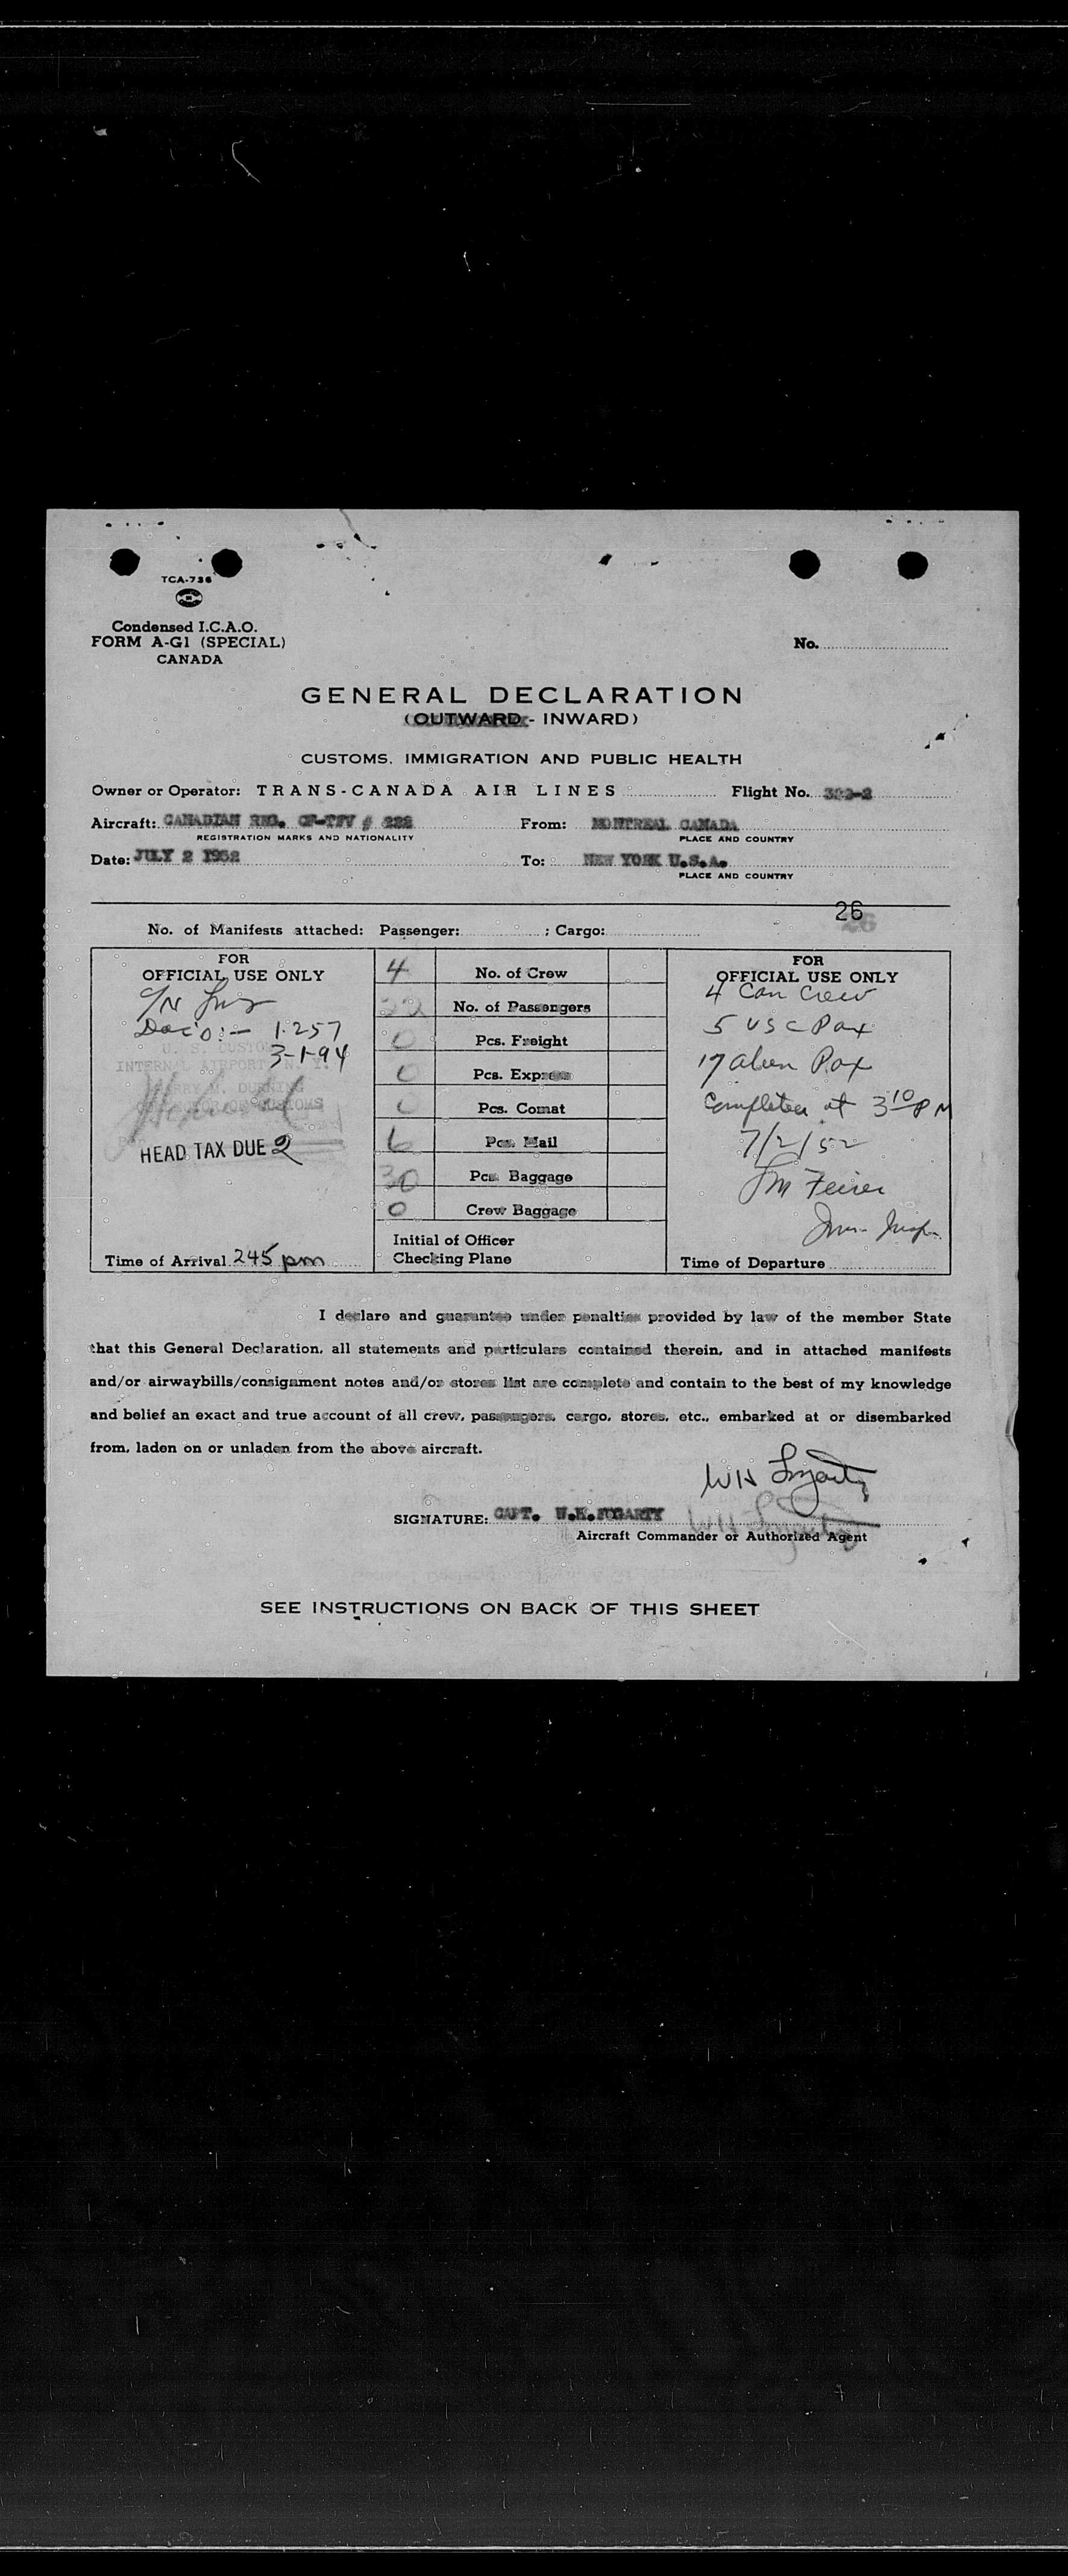 TCA-736
Condensed I.C.A.O.
FORM A-G1 (SPECIAL)
CANADA
No.
GENERAL DECLARATION
(OUTWARD - INWARD)
CUSTOMS, IMMIGRATION AND PUBLIC HEALTH
Owner or Operator: TRANS-CANADA AIR LINES Flight No.
Aircraft: CANADIAN REG. CF-TFV # 222 From: MONTREAL CANADA
REGISTRATION MARKS AND NATIONALITY PLACE AND COUNTRY
Date: JULY 2 1952 To: NEW YORK U.S.A.
PLACE AND COUNTRY
26
No. of Manifests attached: Passenger: ; Cargo:
FOR
OFFICIAL USE ONLY
Dec's:- 1-257
3-1-94
U. S. CUSTOMS
INTERN'L AIRPORT N. Y.
HARRY M. DURNING
COLLECTOR OF CUSTOMS
HEAD TAX DUE 2
Time of Arrival 245 pm
4 No. of Crew
22 No. of Passengers
0 Pcs. Freight
0 Pcs. Express
0 Pcs. Comat
6 Pcs. Mail
30 Pcs. Baggage
0 Crew Baggage
Initial of Officer
Checking Plane
FOR
OFFICIAL USE ONLY
4 Can Crew
5 USC Pax
17 alien Pax
Completed at 3 10 PM
7/2/52
Imm. Insp.
Time of Departure
I declare and guarantee under penalties provided by law of the member State
that this General Declaration, all statements and particulars contained therein, and in attached manifests
and/or airwaybills/consignment notes and/or stores list are complete and contain to the best of my knowledge
and belief an exact and true account of all crew, passengers, cargo, stores, etc., embarked at or disembarked
from, laden on or unladen from the above aircraft.
WH Fogarty
SIGNATURE: CAPT. W.H.FOGARTY WH Fogarty
Aircraft Commander or Authorized Agent
SEE INSTRUCTIONS ON BACK OF THIS SHEET